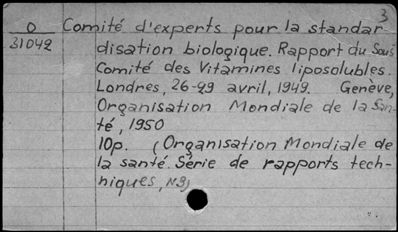 3
O Comité d'experts pour la standar-
31042 disation biologique. Rapport du Sous
Comité des Vitamines liposolubles.
Londres, 26-29 avril, 1949. Genève,
Organisation Mondiale de la San-
té, 1950
10p. (Organisation Mondiale de
la santé. Série de rapports tech-
niques, N3)